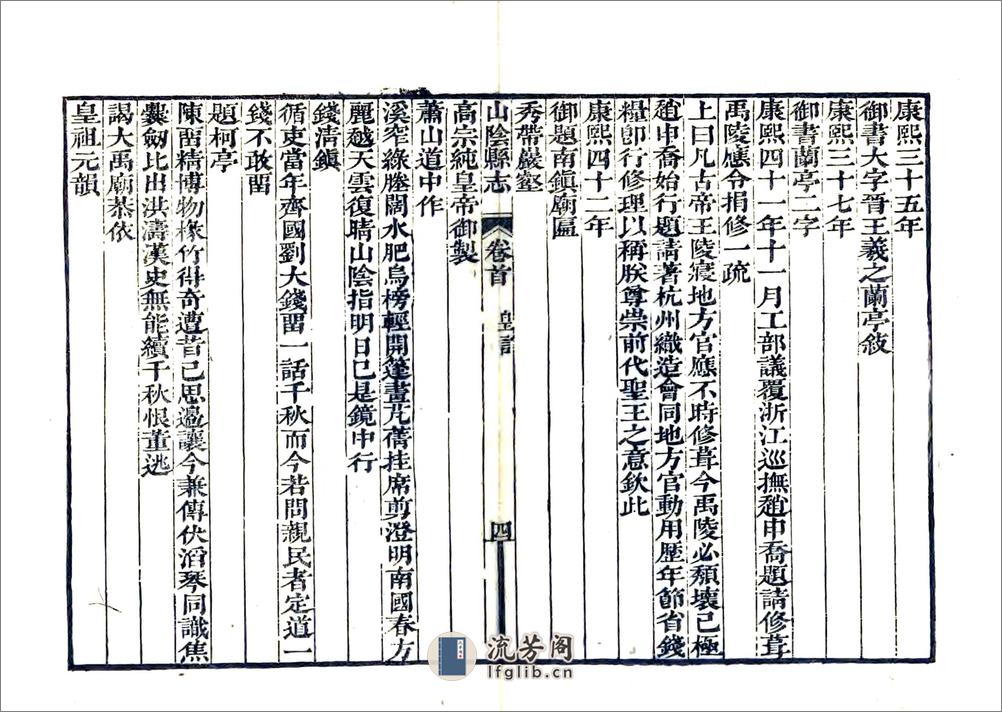 康熙三十五年
御書大字晉王羲之蘭亭敘
康熙三十七年
御書蘭亭二字
康熙四十一年十一月工部議覆浙江巡撫趙申喬題請修葺
禹陵應令捐修一疏
上曰凡古帝王陵寢地方官應不時修葺今禹陵必頹壞已極
趙申喬始行題請著杭州織造會同地方官動用歷年節省錢
糧卽行修理以稱朕尊崇前代聖王之意欽此
康熙四十二年
御題南鎮廟匾
秀帶巖壑
山陰縣志 卷首 皇言 四
高宗純皇帝御製
蕭山道中作
溪窄綠塍闊水肥烏榜輕開篷畫芃蒨挂席剪澄明南國春方
麗越天雲復晴山陰指明日已是鏡中行
錢清鎮
循吏當年齊國劉大錢畱一話千秋而今若問親民者定道一
錢不敢畱
題柯亭
陳畱精博物椽竹得奇遭昔已思邈讓今兼傳伏滔琴同識焦
爨劒比出洪濤漢史無能續千秋恨董逃
謁大禹廟恭依
皇祖元韻
流芳阁
lfglib.cn